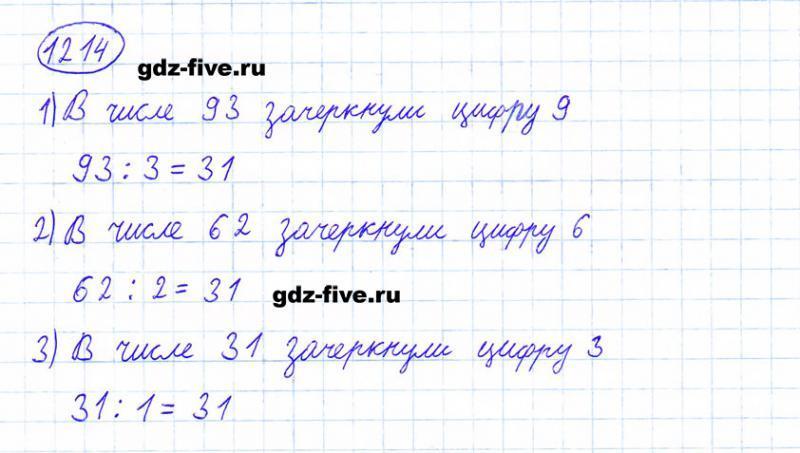 1214
gdz-five.ru
1) В числе 93 зачеркнули цифру 9
93 : 3 = 31
2) В числе 62 зачеркнули цифру 6
62 : 2 = 31
gdz-five.ru
3) В числе 31 зачеркнули цифру 3
31 : 1 = 31